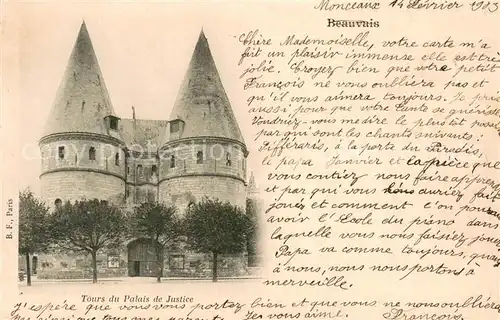 Monceaux 14 Février 1903
Beauvais
Chère Mademoiselle, votre carte m'a
fait un plaisir immense elle est très
jolie. Croyez bien que votre petit
François ne vous oubliera pas et
qu'il vous aimera toujours. Je prie
aussi pour que votre santé se
Voudriez-vous me dire le plus tôt possi
par qui sont les chants suivants.
à la porte du Paradis,
le papa Janvier et la pièce que
vous comtiez nous faire appre
et par qui vous nous auriez fait
jouer et comment l'on pourra
avoir l'École du piano dans
laquelle vous nous faisiez jouer
Papa va comme toujours, quant
à nous, nous nous portons à
merveille.
B. F., Paris
Tours du Palais de Justice
J'espère que vous vous portez bien et que vous ne nous oubliera
que tous mes parents. Je vous aime. François